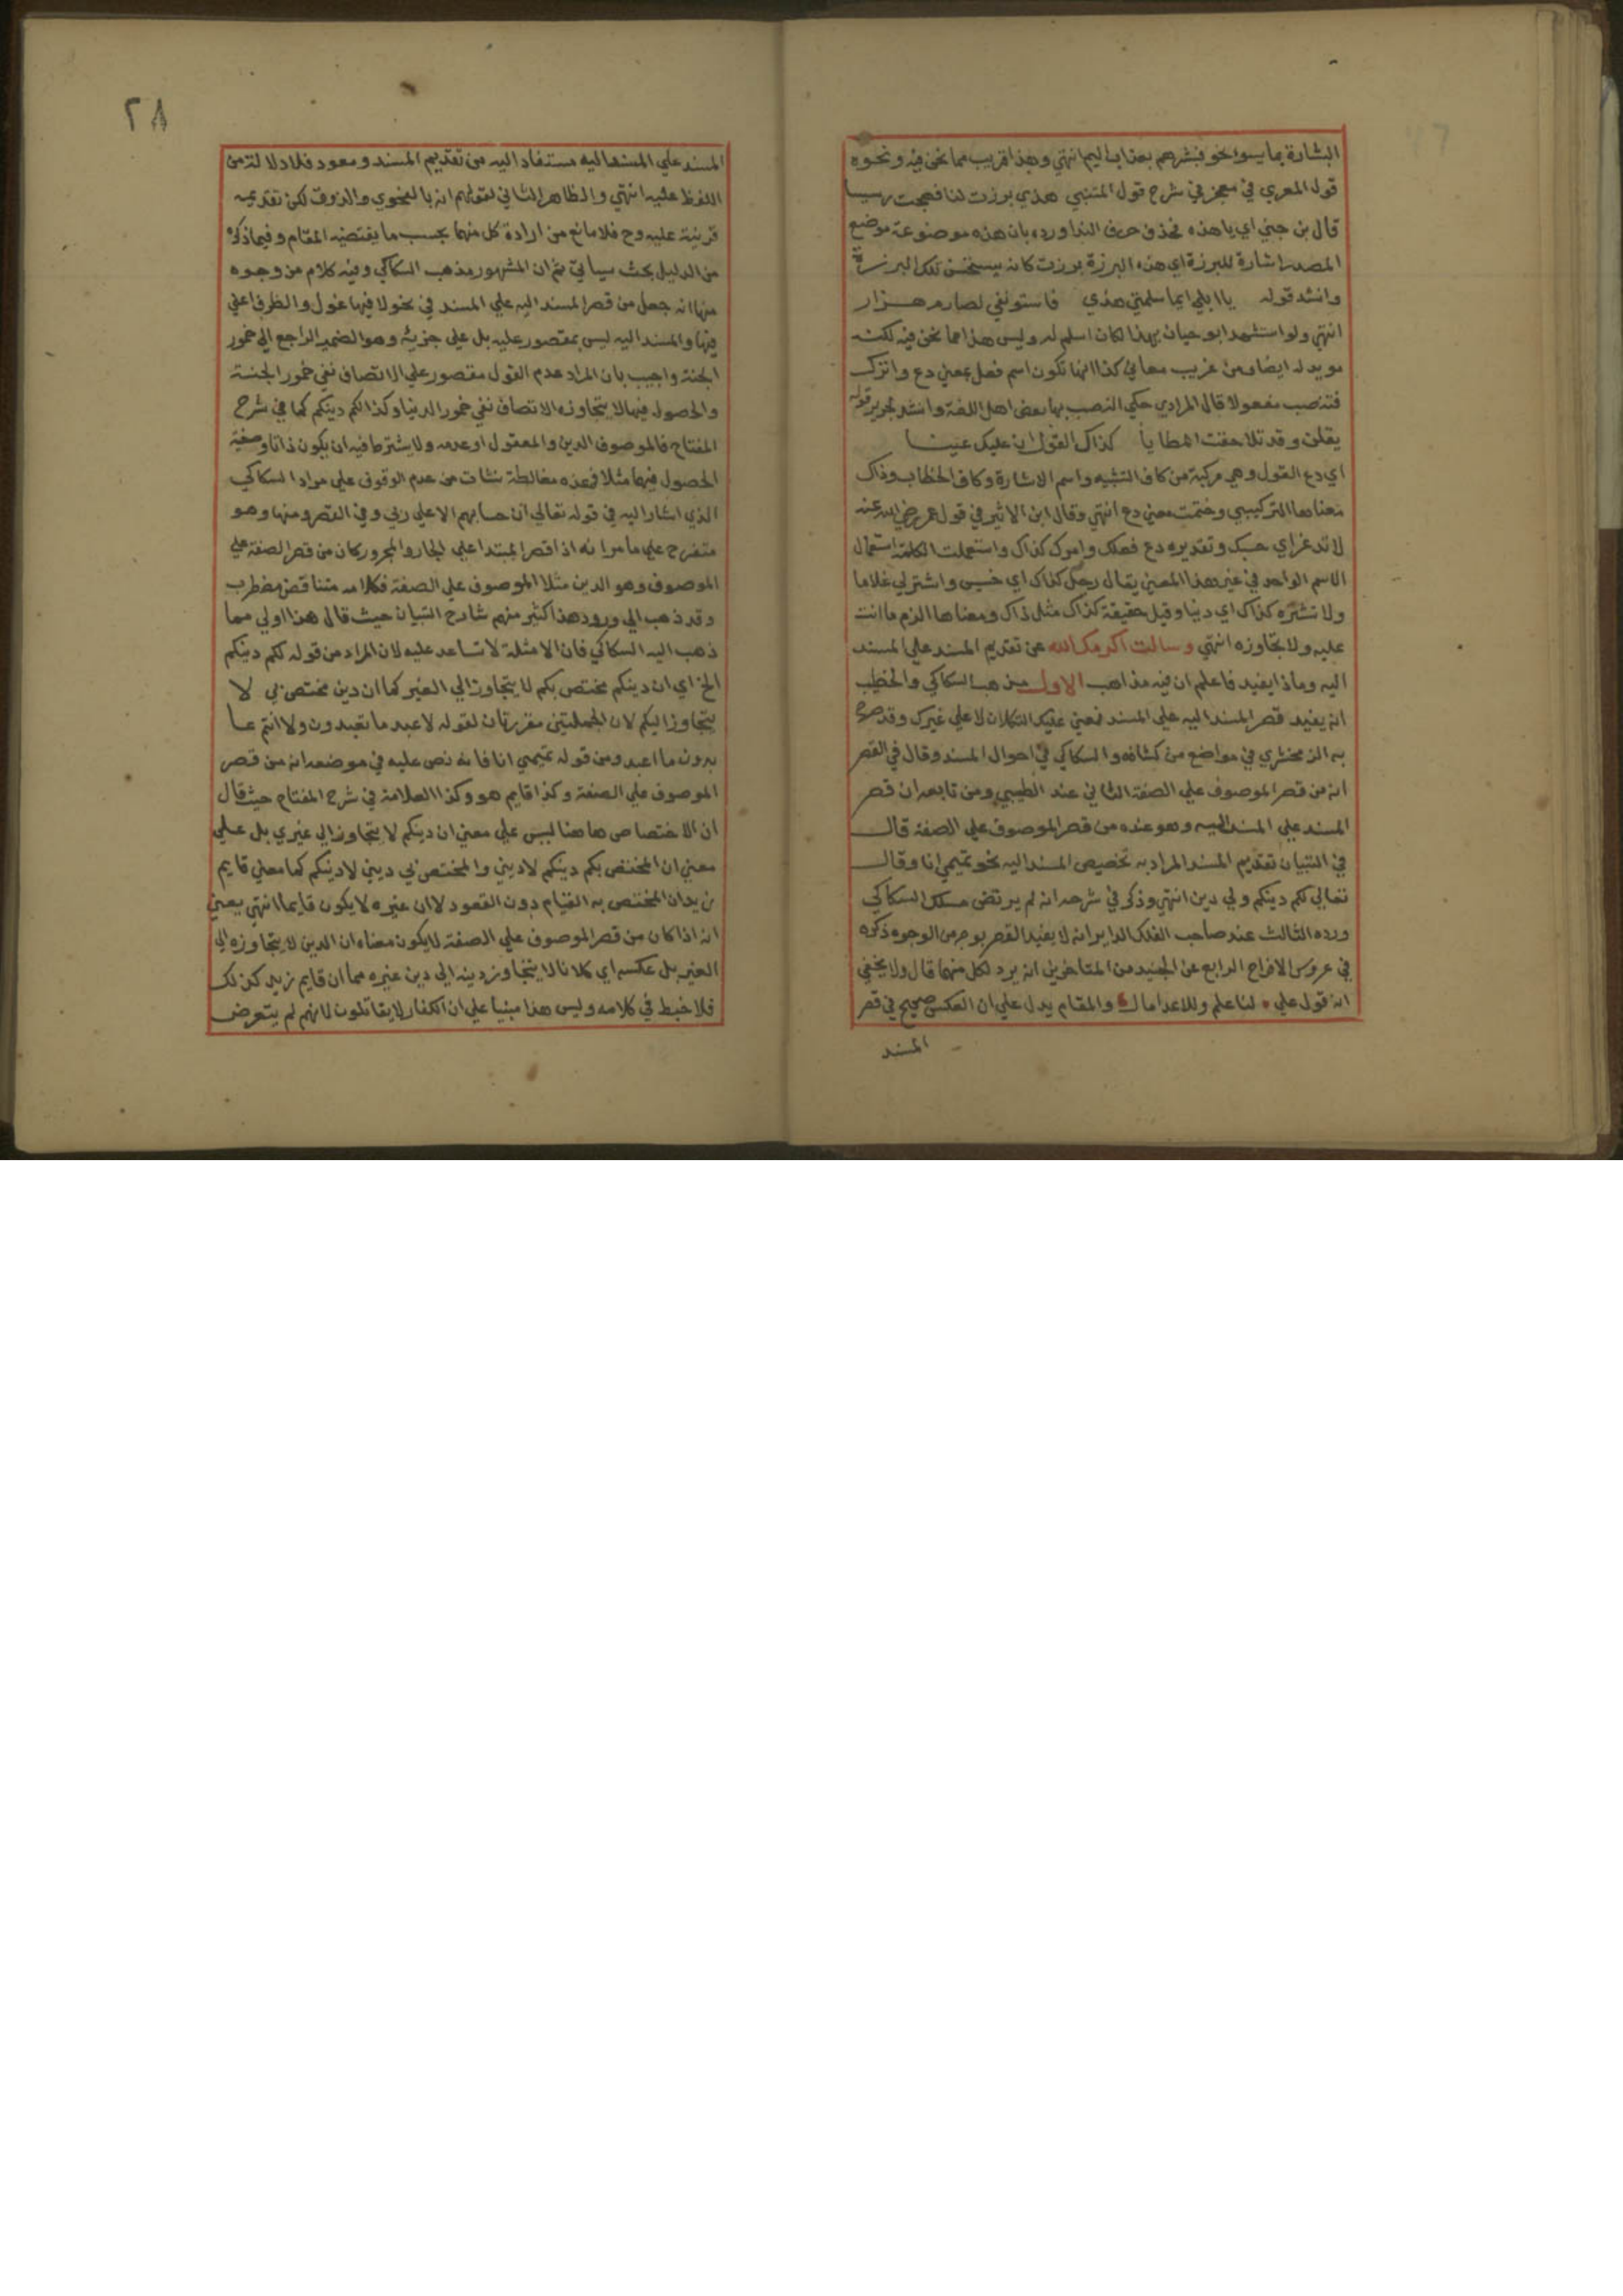 البشارة بما يسوا نحو فبشرهم بعذاب اليم انتهي وهذا قريب مما نحن فيه ونحوه
قول المعري في معجز في شرح قول المتنبي هذي برزت لنا فهجت رسيسا
قال بن جني اي يا هذه فحذف حرف الندا ورده بان هذه موضوعة موضع
المصدر اشارة للبرزة اي هذه البرزة برزت كانه يستحسن تلك البرزة
وانشد قوله يا ابلي اما سلمتي هذي فاستوثقي لصارم هزار
انتهي ولو استشهد ابو حيان بهذا لكان اسلم له وليس هذا مما نحن فيه لكنه
مويد له ايضا ومن غريب معاني كذا انها تكون اسم فعل بمعني دع واترك
فتنصب مفعولا قال المرادي حكي النصب بها بعض اهل اللغة وانشد لجرير قوله
يقلن وقد تلاحقت المطايا كذاك القول ان عليك عينا
اي دع القول وهي مركبة من كاف التشبيه واسم الاشارة وكاف الخطاب وذاك
معناها التركيبي وضمنت معني دع انتهي وقال ابن الاثير في قول عمر رضي الله عنه
اي حسبك وتقديره دع فعلك وامرك كذاك واستعملت الكلمة استعمال
الاسم الواحد في غير هذا المعني يقال رجل كذاك اي خسيس واشتر لي غلاما
ولا تشتره كذاك اي دنيا وقيل حقيقة كذاك مثل ذاك ومعناها الزم ما انت
عليه ولا تتجاوزه انتهي وسالت اكرمك الله عن تقديم المسند علي المسند
اليه وماذا يفيد فاعلم ان فيه مذاهب الاول مذهب السكاكي والخطيب
انه يفيد قصر المسند اليه علي المسند فمعني عليك التكلان لا علي غيرك وقد صرح
به الزمخشري في مواضع من كشافه والسكاكي في احوال المسند وقال في القصر
انه من قصر الموصوف علي الصفة الثاني عند الطيبي ومن تابعه ان قصر
المسند علي المسند اليه وهو عنده من قصر الموصوف علي الصفة قال
في التبيان تقديم المسند المراد به تخصيص المسند اليه نحو تميمي انا وقال
تعالي لكم دينكم ولي دين انتهي وذكر في شرحه انه لم يرتض مسلك السكاكي
ورده الثالث عند صاحب الفلك الداير انه لا يفيد القصر بوجه من الوجوه ذكره
في عروس الافراح الرابع عن من المتاخرين انه يرد لكل منهما قال ولا يخفي
ان قول علي لنا علم وللاعدا مال والمقام يدل علي ان العكس صحيح في قصر
المسند
٢٨
المسند علي المسند اليه مستفاد اليه من تقديم المسند ومعود فلا دلالة من
اللفظ عليه انتهي والظاهر الثاني لقولهم انه بالفحوي والذوق لكن تقديمه
قرينة عليه وح فلا مانع من ارادة كل منهما بحسب ما يقتضيه المقام وفيما ذكره
من الدليل بحث سياتي ثم ان المشهور مذهب السكاكي وفيه كلام من وجوه
منها انه جعل من قصر المسند اليه علي المسند في نحو لا فيها غول والظرف اعني
فيها والمسند اليه ليس بمقصور عليه بل علي جزئه وهو الضمير الراجع الي خمور
الجنة واجيب بان المراد عدم الغول مقصور علي الاتصاف نفي خمور الجنة
والحصول فيها لا يتجاوزه الاتصاف نفي خمور الدنيا وكذا لكم دينكم كما في شرح
المفتاح فالموصوف الدين والمعقول او عدمه ولا يشترط فيه ان يكون ذاتا وصفة
الحصول فيها مثلا فهذه مغالطة نشات من عدم الوقوف علي مراد السكاكي
الذي اشار اليه في قوله تعالي ان حسابهم الا علي ربي وفي القصر ومنها وهو
متفرع علي ما مر انه اذا قصر المبتدا علي الجار والمجرور كان من قصر الصفة علي
الموصوف وهو الدين مثلا الموصوف علي الصفة فكلامه متناقض مضطرب
وقد ذهب الي ورود هذا كثير منهم شارح التبيان حيث قال هذا اولي مما
ذهب اليه السكاكي فان الامثلة لا تساعد عليه لان المراد من قوله لكم دينكم
الخ اي ان دينكم مختص بكم لا يتجاوز الي الغير كما ان دين مختص بي لا
يتجاوز اليكم لان الجملتين مقررتان لقوله لا اعبد ما تعبدون ولا انتم عا
بدون ما اعبد ومن قوله تميمي انا فانه نص عليه في موضعه انه من قصر
الموصوف علي الصفة وكذا قايم هو وكذا العلامة في شرح المفتاح حيث قال
ان الاختصاص هاهنا ليس علي معني ان دينكم لا يتجاوز الي غيري بل علي
معني ان المختص بكم دينكم لا ديني والمختص بي ديني لا دينكم كما معني قايم
زيد ان المختص به القيام دون القعود لا ان غيره لا يكون قايما انتهي يعني
انه اذا كان من قصر الموصوف علي الصفة لا يكون معناه ان الدين لا يتجاوزه الي
الغير بل عكسه اي كلانا لا يتجاوز دينه الي دين غيره كما ان قايم زيد كذلك
فلا خبط في كلامه وليس هذا مبنيا علي ان الكفار لا يقاتلون لانهم لم يتعرض